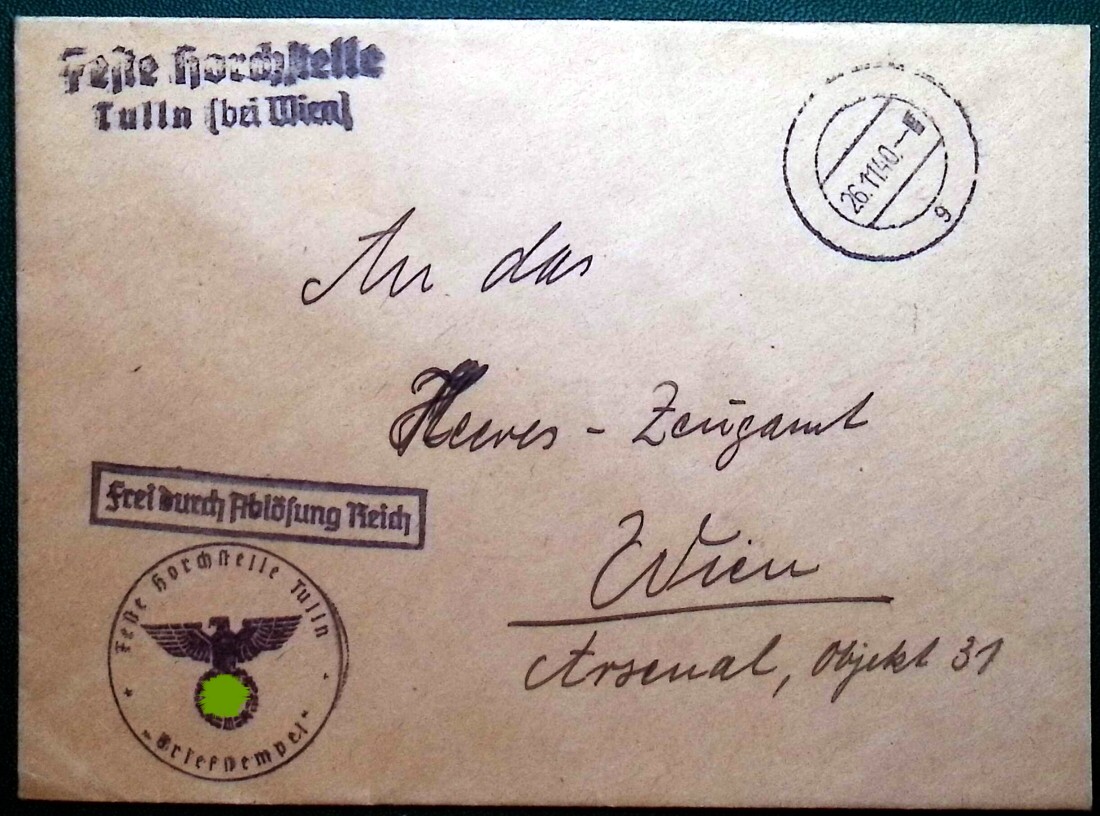 Feste Horchstelle
Tulln (bei Wien)
26.11.40.
g
An das
Heeres - Zeugamt
Frei durch Ablösung Reich
Wien
Feste Horchstelle Tulln
Arsenal, Objekt 31
"Briefstempel"